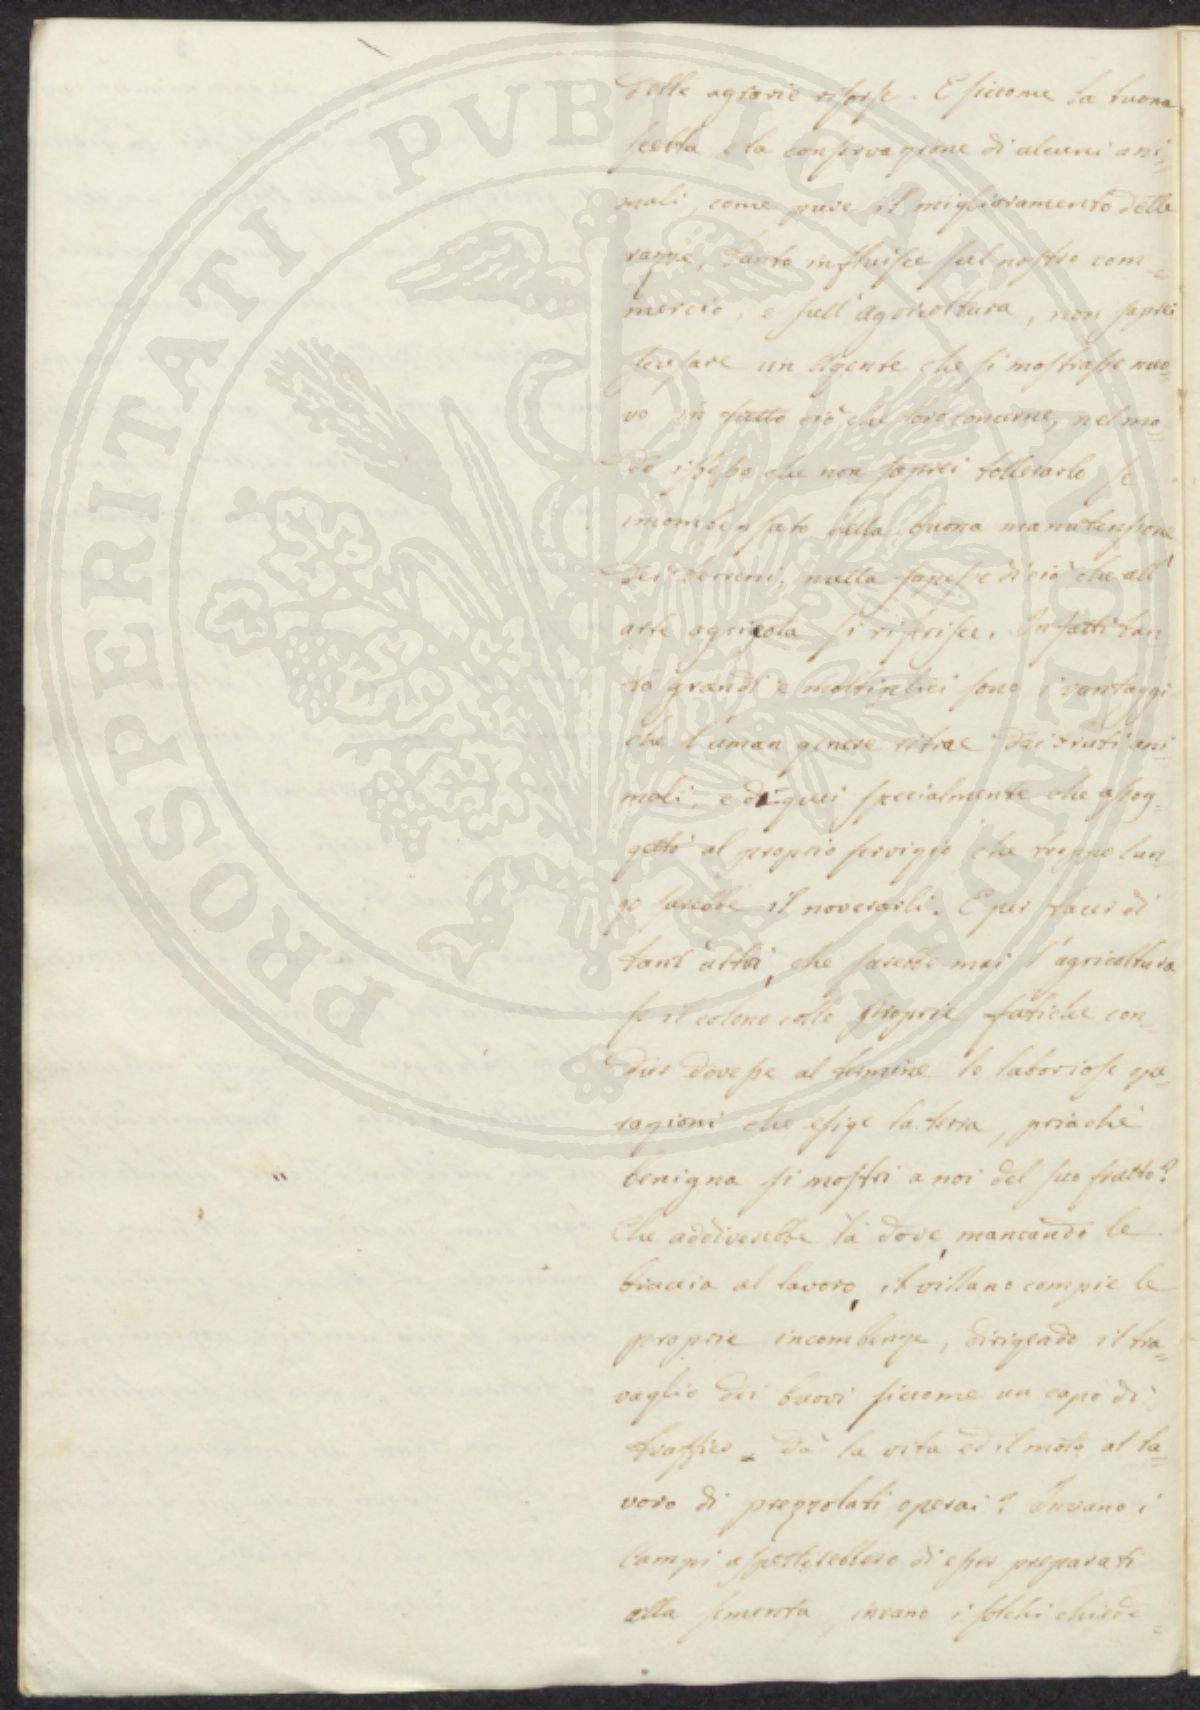 delle agrarie risorse. E siccome la buona
scelta e la conservazione di alcuni ani=
mali, come pure il miglioramento delle
razze, tanto influisce sul nostro com=
mercio, e sull'agricoltura, non saprei
scusare un Agente che si mostrasse nuo=
vo in tutto ciò che loro concerne, nel mo=
do istesso che non saprei tollerarlo se
incombensato della buona manutensione
dei terreni, nulla sapesse di ciò che all'
arte agricola si riferisce. Infatti tan
to grandi e moltiplici sono i vantaggi
che l'uman genere ritrae dai bruti ani=
mali, e di quei specialmente che assog=
gettò al proprio servigio che troppo lun=
go sarebbe il noverarli. E per tacer di
tant'altri, che sarebbe mai l'agricoltura
se il colono colle proprie fatiche con=
dur dovesse al termine le laboriose ope=
razioni che esige la terra, priachè
benigna si mostri a noi del suo frutto?
Che addiverebbe là dove, mancando le
braccia al lavoro, il villano compie le
proprie incombenze, dirigendo il tra=
vaglio dei buovi siccome un capo di
traffico dà la vita ed il moto al la=
voro di prezzolati operai? Invano i
Campi aspetterebbero di esser preparati
alla sementa, invano i solchi chiede=
PROSPERITATI PVBLICAE AVGENDAE